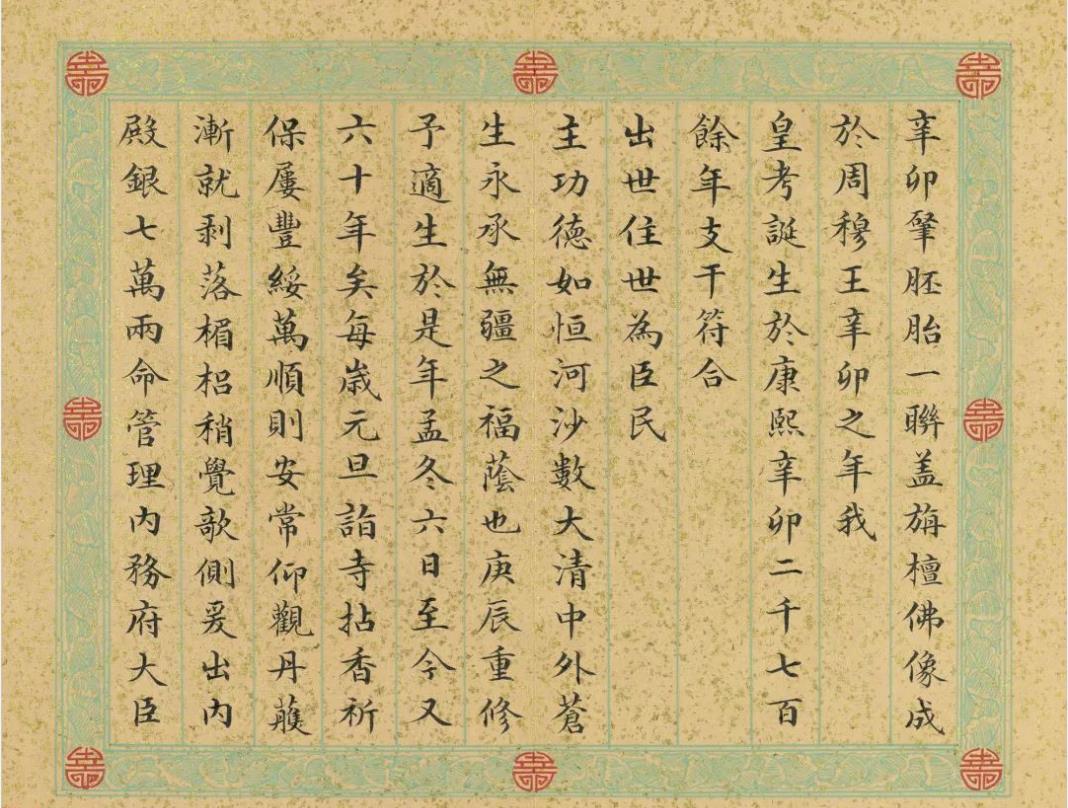 辛卯肇胚胎一聯盖旃檀佛像成
於周穆王辛卯之年我
皇考誕生於康熙辛卯二千七百
餘年支干符合
出世住世為臣民
主功德如恒河沙數大清中外蒼
生永承無疆之福蔭也庚辰重修
予適生於是年孟冬六日至今又
六十年矣每歲元旦詣寺拈香祈
保屢豐綏萬順則安常仰觀丹雘
漸就剥落楣梠稍覺欹側爰出內
殿銀七萬兩命管理内務府大臣